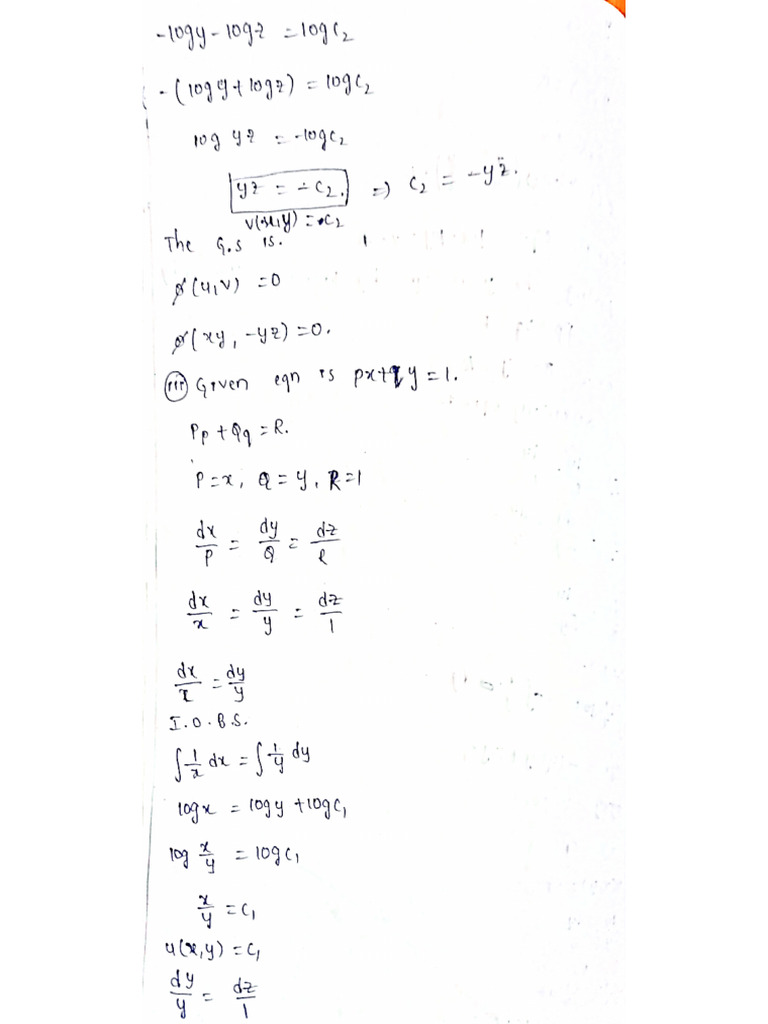 -logy - logz = logc₂
-(logy + logz) = logc₂
log yz = -logc₂
yz = -c₂. ⇒ c₂ = -yz.
v(x,y) = c₂
The G.S is.
φ(u,v) = 0
φ(xy, -yz) = 0.
(iii) Given eqn is px+qy = 1.
Pp + Qq = R.
P = x, Q = y, R = 1
dx/P = dy/Q = dz/R
dx/x = dy/y = dz/1
dx/x = dy/y
I.O.B.S.
∫1/x dx = ∫1/y dy
logx = logy + logc₁
log x/y = logc₁
x/y = c₁
u(x,y) = c₁
dy/y = dz/1